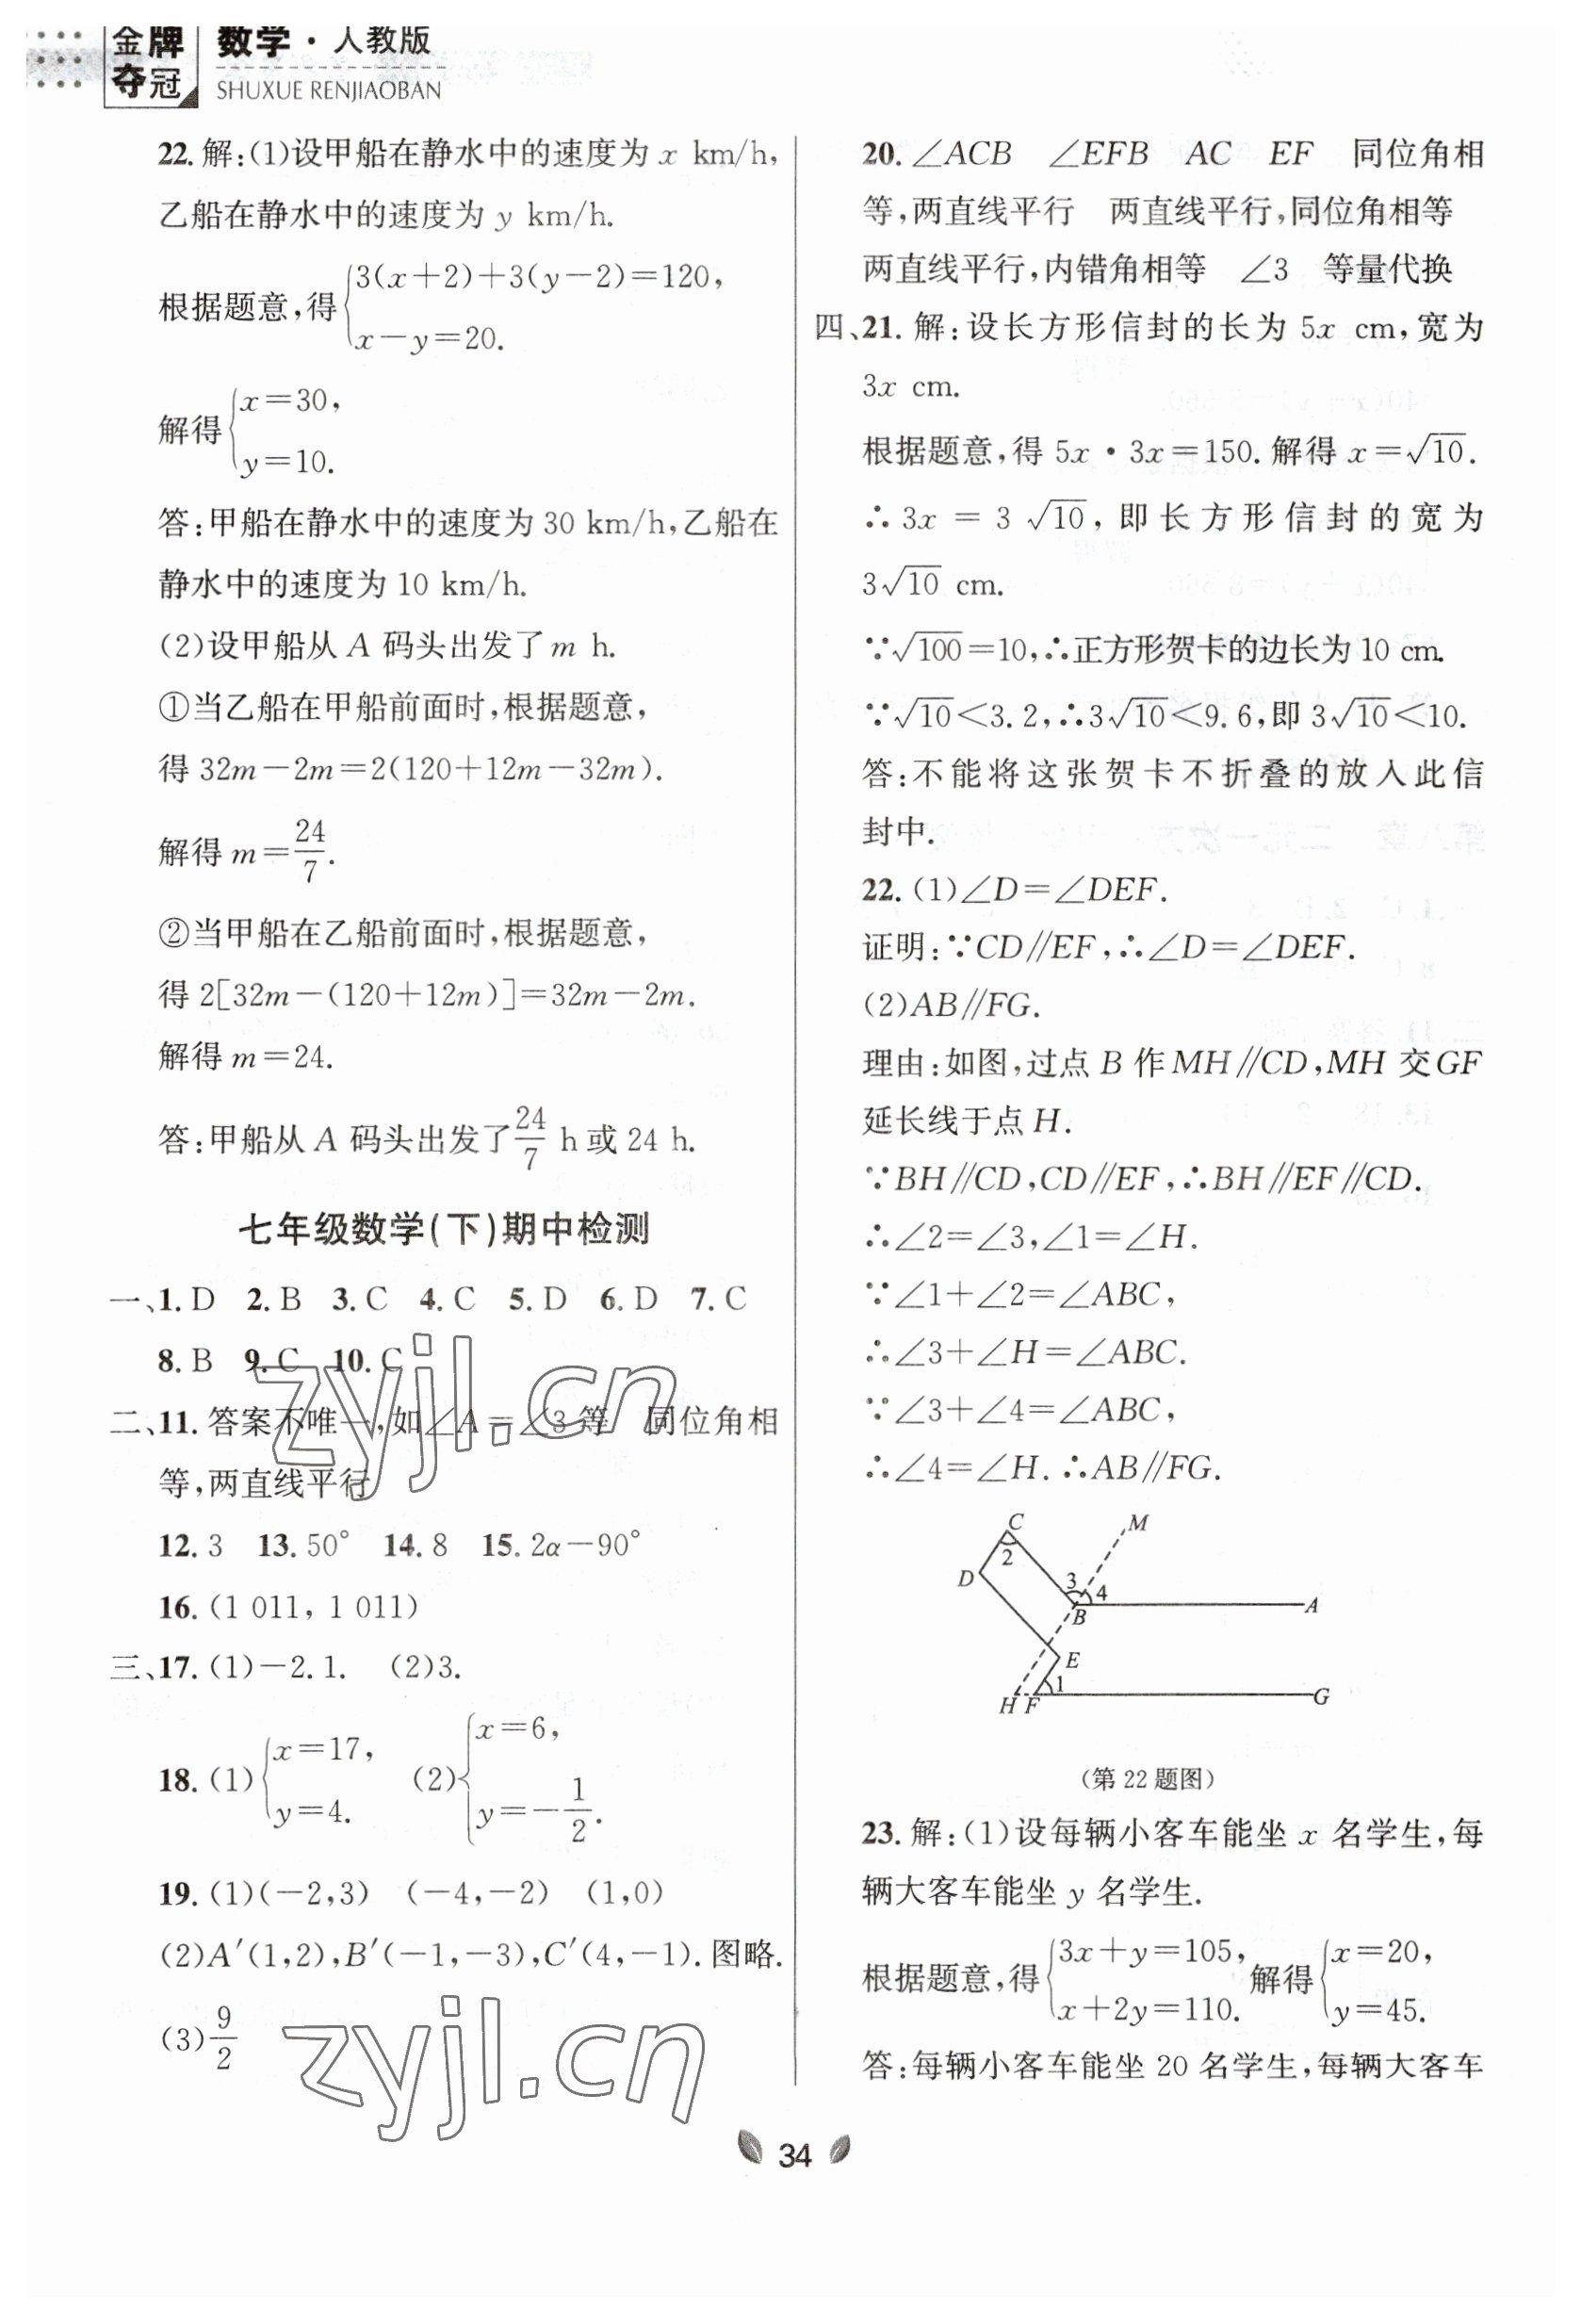 金牌
夺冠
数学·人教版
SHUXUE RENJIAOBAN
22.解:(1)设甲船在静水中的速度为 x km/h,
乙船在静水中的速度为 y km/h.
根据题意,得{3(x+2)+3(y-2)=120,
x-y=20.
解得{x=30,
y=10.
答:甲船在静水中的速度为 30 km/h,乙船在
静水中的速度为 10 km/h.
(2)设甲船从 A 码头出发了 m h.
①当乙船在甲船前面时,根据题意,
得 32m-2m=2(120+12m-32m).
解得 m=24/7.
②当甲船在乙船前面时,根据题意,
得 2[32m-(120+12m)]=32m-2m.
解得 m=24.
答:甲船从 A 码头出发了24/7 h 或 24 h.
七年级数学(下)期中检测
一、1. D 2. B 3. C 4. C 5. D 6. D 7. C
8. B 9. C 10. C
二、11. 答案不唯一,如∠A=∠3 等 同位角相
等,两直线平行
12. 3 13. 50° 14. 8 15. 2α-90°
16. (1 011, 1 011)
三、17. (1)-2.1. (2)3.
18. (1){x=17, y=4. (2){x=6, y=-1/2.
19. (1)(-2,3) (-4,-2) (1,0)
(2)A′(1,2),B′(-1,-3),C′(4,-1).图略.
(3)9/2
20. ∠ACB ∠EFB AC EF 同位角相
等,两直线平行 两直线平行,同位角相等
两直线平行,内错角相等 ∠3 等量代换
四、21. 解:设长方形信封的长为 5x cm,宽为
3x cm.
根据题意,得 5x·3x=150. 解得 x=√10.
∴3x=3√10,即长方形信封的宽为
3√10 cm.
∵√100=10,∴正方形贺卡的边长为 10 cm.
∵√10<3.2,∴3√10<9.6,即 3√10<10.
答:不能将这张贺卡不折叠的放入此信
封中.
22. (1)∠D=∠DEF.
证明:∵CD∥EF,∴∠D=∠DEF.
(2)AB∥FG.
理由:如图,过点 B 作 MH∥CD,MH 交 GF
延长线于点 H.
∵BH∥CD,CD∥EF,∴BH∥EF∥CD.
∴∠2=∠3,∠1=∠H.
∵∠1+∠2=∠ABC,
∴∠3+∠H=∠ABC.
∵∠3+∠4=∠ABC,
∴∠4=∠H.∴AB∥FG.
C
M
2
D
3
4
B
A
E
1
H
F
G
(第 22 题图)
23. 解:(1)设每辆小客车能坐 x 名学生,每
辆大客车能坐 y 名学生.
根据题意,得{3x+y=105, x+2y=110. 解得{x=20, y=45.
答:每辆小客车能坐 20 名学生,每辆大客车
34
zyjl.cn
zyjl.cn